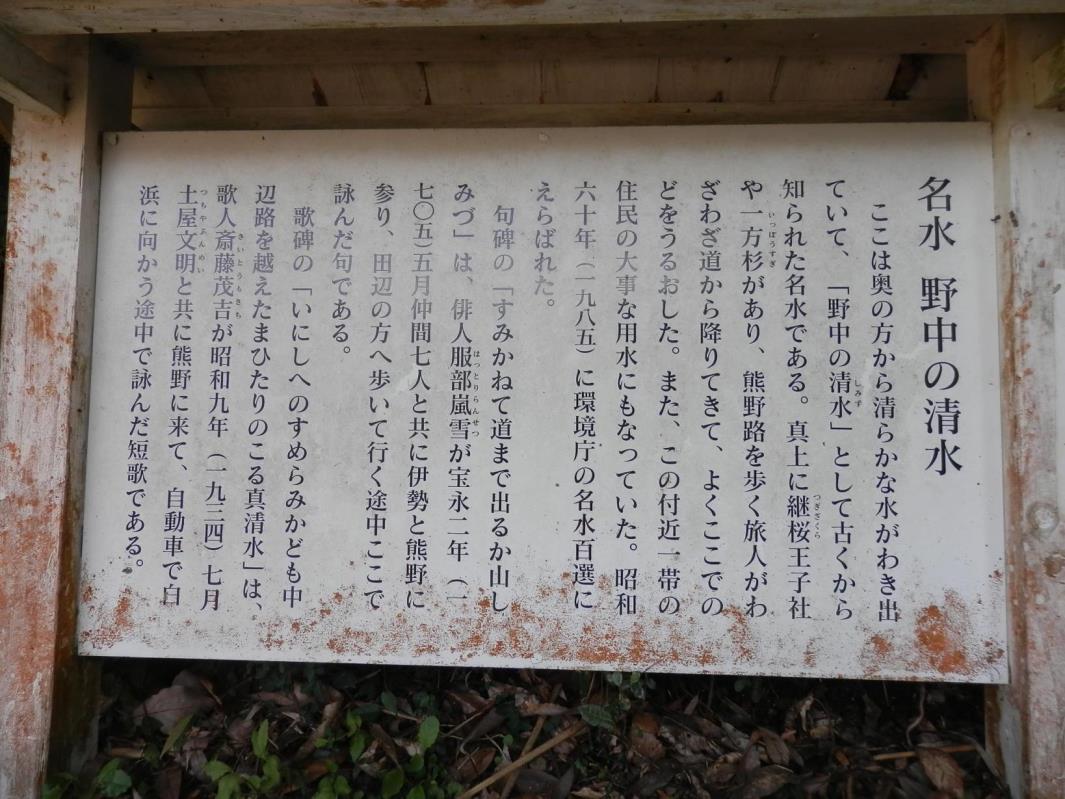 名水 野中の清水
ここは奥の方から清らかな水がわき出
ていて、「野中の清水」として古くから
知られた名水である。真上に継桜王子社
や一方杉があり、熊野路を歩く旅人がわ
ざわざ道から降りてきて、よくここでの
どをうるおした。また、この付近一帯の
住民の大事な用水にもなっていた。昭和
六十年（一九八五）に環境庁の名水百選に
えらばれた。
句碑の「すみかねて道まで出るか山し
みづ」は、俳人服部嵐雪が宝永二年（一
七〇五）五月仲間七人と共に伊勢と熊野に
参り、田辺の方へ歩いて行く途中ここで
詠んだ句である。
歌碑の「いにしへのすめらみかども中
辺路を越えたまひたりのこる真清水」は、
歌人斎藤茂吉が昭和九年（一九三四）七月
土屋文明と共に熊野に来て、自動車で白
浜に向かう途中で詠んだ短歌である。
しみず
つぎざくら
いっぽうすぎ
はっとりらんせつ
さいとうもきち
つちやぶんめい